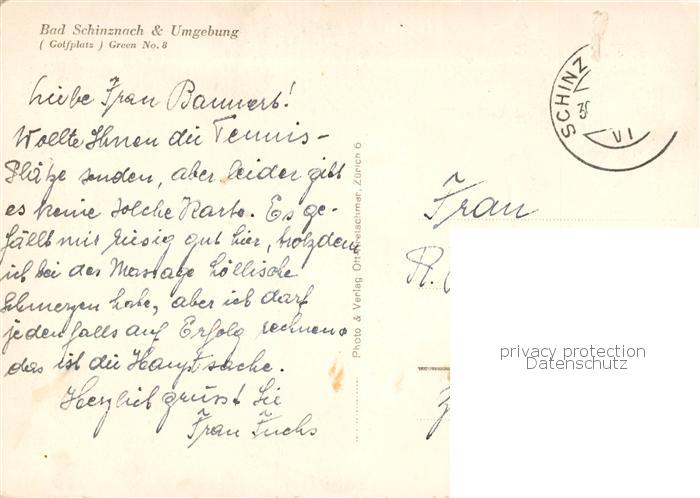 Bad Schinznach & Umgebung
( Golfplatz ) Green No. 8
Liebe Frau Bannert!
Wollte Ihnen die Tennis-
Plätze senden, aber leider gibt
es keine solche Karte. Es ge-
fällt mir riesig gut hier, trotzdem
ich bei der Massage höllische
Schmerzen habe, aber ich darf
jedenfalls auf Erfolg rechnen &
das ist die Hauptsache.
Herzlich grüsst Sie
Frau Fuchs
Photo & Verlag Otto Pretschmar, Zürich 6
SCHINZ
VI
Frau
privacy protection
Datenschutz